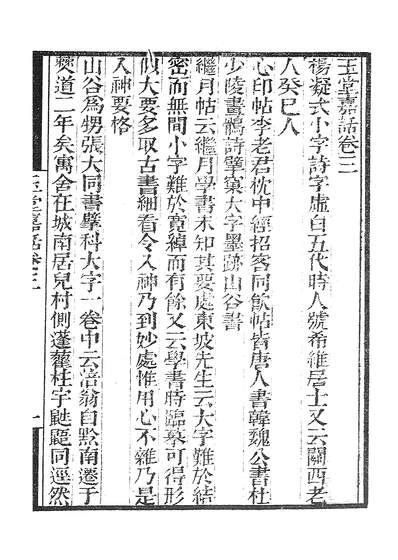 玉堂嘉話卷三
楊凝式小字詩字虛白五代時人號希維居士又云關西老
人癸巳人
心印帖李老君枕中經招客同飲帖皆唐人書韓魏公書杜
少陵畫鶻詩擘窠大字墨跡山谷書
繼月帖云繼月學書未知其要處東坡先生云大字難於結
密而無間小字難於寬綽而有餘又云學書時臨摹可得形
似大要多取古書細看令入神乃到妙處惟用心不雜乃是
入神要格
山谷為甥張大同書擘科大字一卷中云涪翁自黔南遷于
僰道二年矣寓舍在城南居兒村側蓬藋柱宇鼪鼯同逕然
玉堂嘉話卷三
一